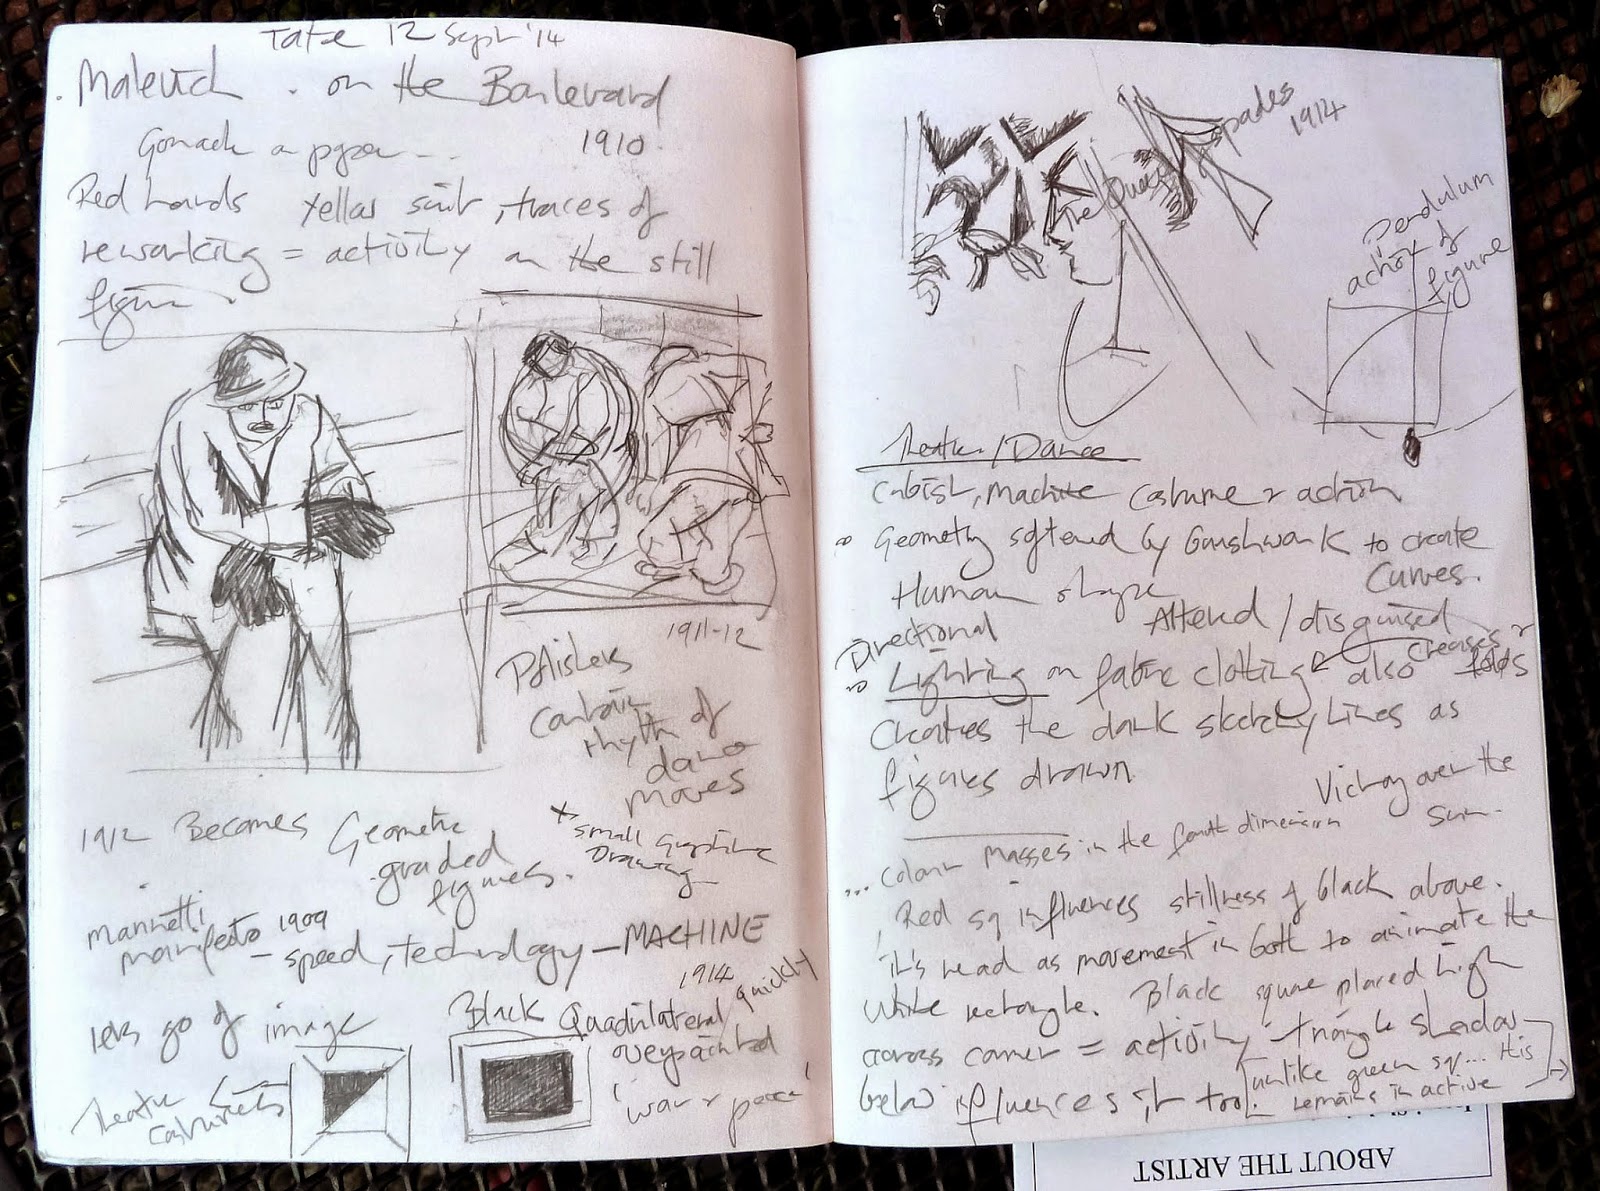 Tate 12 Sept '14
. Malevich . on the Boulevard
Gouache on paper ... 1910.
Red hands yellow suit, traces of
reworking = activity on the still
figure.
1911-12
Pollishers
contain
rhyth of
dance
moves
1912 Becomes Geometric
graded
figures.
x small
Drawing
marinetti
manifesto 1909
- speed, technology - MACHINE
lets go of image
Theatre
costumes
1914
Black Quadrilateral quickly
overpainted
'war & peace'
The Queen of spades
1914
Pendulum
action of
figure
Theatre / Dance
Cubist, Machine Costume & action
Geometry softened by brushwork to create
Human shape curves.
Directional Altered / disguised
Lighting on fabric clothing also creases &
folds
Creates the dark sketchy lines as
figures drawn
Victory over the
Sun.
... Colour Masses in the fourth dimension
Red sq influences stillness of black above.
it's read as movement in both to animate the
white rectangle. Black square placed high
across corner = activity - triangle shadow
below influences it too. [unlike green sq... this
remains in active]
ABOUT THE ARTIST